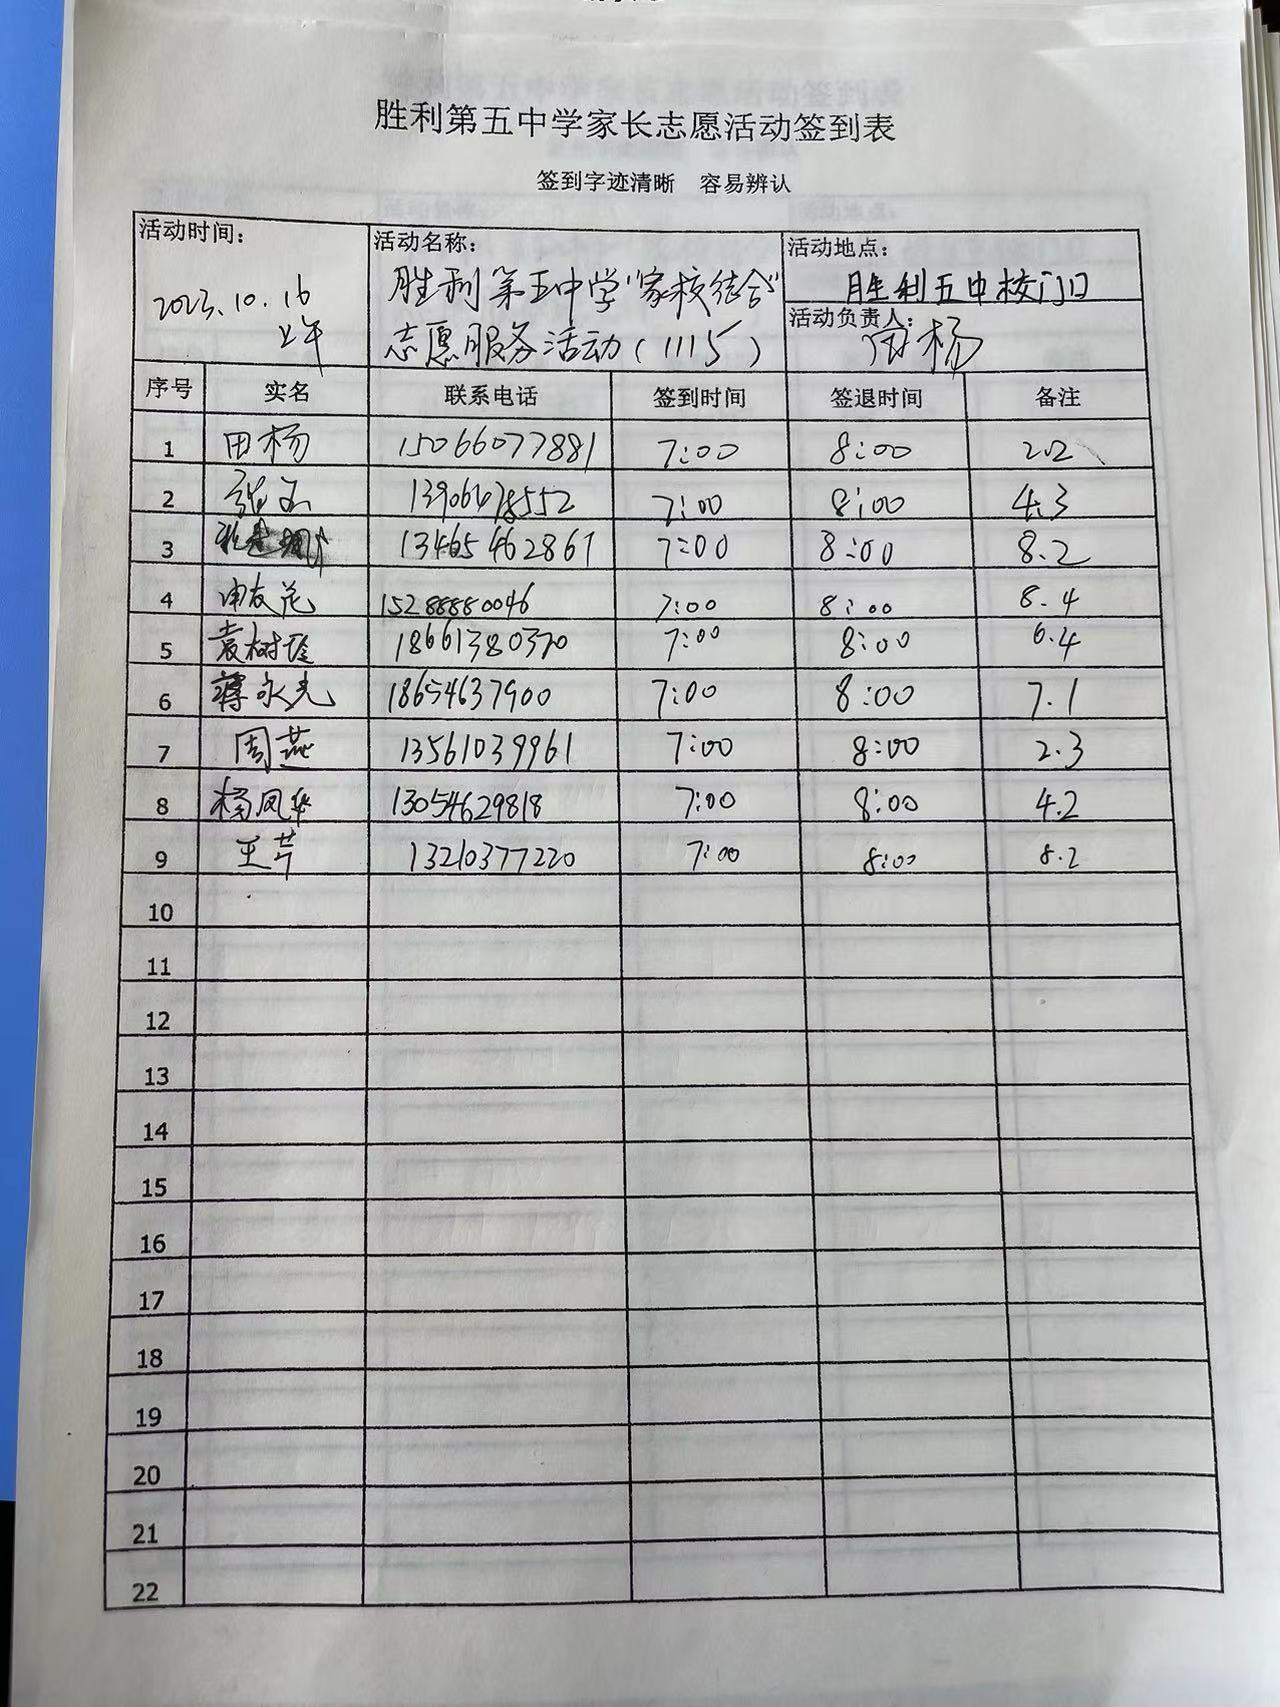 胜利第五中学家长志愿活动签到表
签到字迹清晰 容易辨认
活动时间: 2023.10.16 上午
活动名称: 胜利第五中学"家校结合"
志愿服务活动(1115)
活动地点: 胜利五中校门口
活动负责人: 田杨
序号 实名 联系电话 签到时间 签退时间 备注
1 田杨 15066077881 7:00 8:00 2.2
2 13906478552 7:00 8:00 4.3
3 13465462861 7:00 8:00 8.2
4 申友花 15288880046 7:00 8:00 8.4
5 袁树玲 18661380370 7:00 8:00 6.4
6 蒋永光 18654637900 7:00 8:00 7.1
7 周燕 13561039961 7:00 8:00 2.3
8 杨凤华 13054629818 7:00 8:00 4.2
9 王芹 13210377220 7:00 8:00 8.2
10
11
12
13
14
15
16
17
18
19
20
21
22